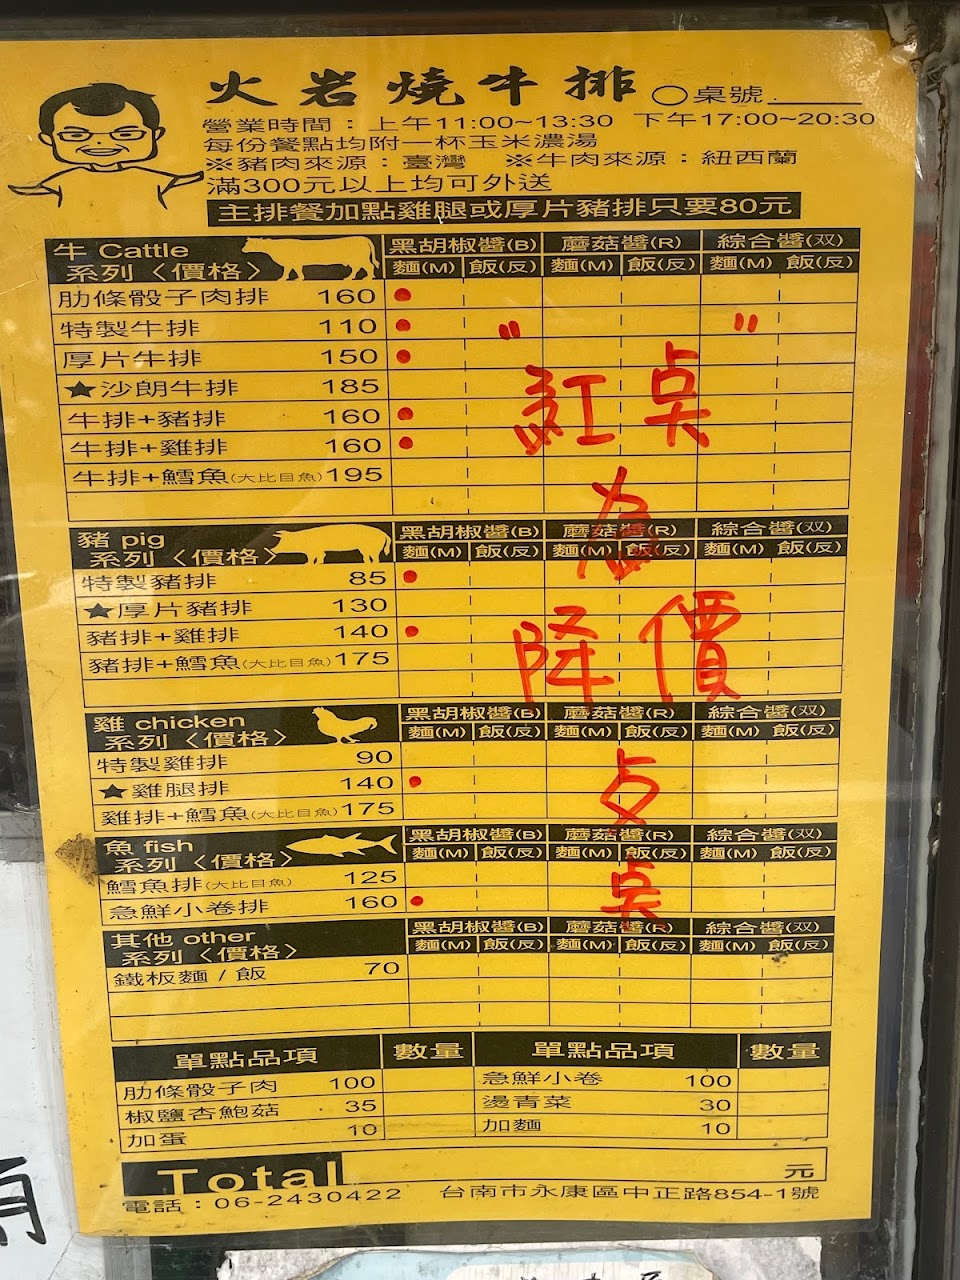 火岩燒牛排 ○桌號
營業時間：上午11:00~13:30 下午17:00~20:30
每份餐點均附一杯玉米濃湯
※豬肉來源：臺灣 ※牛肉來源：紐西蘭
滿300元以上均可外送
主排餐加點雞腿或厚片豬排只要80元
牛 Cattle 黑胡椒醬(B) 蘑菇醬(R) 綜合醬(双)
系列〈價格〉 麵(M) 飯(反) 麵(M) 飯(反) 麵(M) 飯(反)
肋條骰子肉排 160
特製牛排 110 〃 〃
厚片牛排 150
★沙朗牛排 185
紅點
牛排+豬排 160
牛排+雞排 160
牛排+鱈魚(大比目魚) 195
為
豬 pig 黑胡椒醬(B) 蘑菇醬(R) 綜合醬(双)
系列〈價格〉 麵(M) 飯(反) 麵(M) 飯(反) 麵(M) 飯(反)
特製豬排 85
★厚片豬排 130
豬排+雞排 140
降價
豬排+鱈魚(大比目魚) 175
雞 chicken 黑胡椒醬(B) 蘑菇醬(R) 綜合醬(双)
系列〈價格〉 麵(M) 飯(反) 麵(M) 飯(反) 麵(M) 飯(反)
特製雞排 90
★雞腿排 140
雞排+鱈魚(大比目魚) 175
魚 fish 黑胡椒醬(B) 蘑菇醬(R) 綜合醬(双)
系列〈價格〉 麵(M) 飯(反) 麵(M) 飯(反) 麵(M) 飯(反)
鱈魚排(大比目魚) 125
急鮮小卷排 160
其他 other 黑胡椒醬(B) 蘑菇醬(R) 綜合醬(双)
系列〈價格〉 麵(M) 飯(反) 麵(M) 飯(反) 麵(M) 飯(反)
鐵板麵/飯 70
單點品項 數量 單點品項 數量
肋條骰子肉 100 急鮮小卷 100
椒鹽杏鮑菇 35 燙青菜 30
加蛋 10 加麵 10
Total 元
電話：06-2430422 台南市永康區中正路854-1號